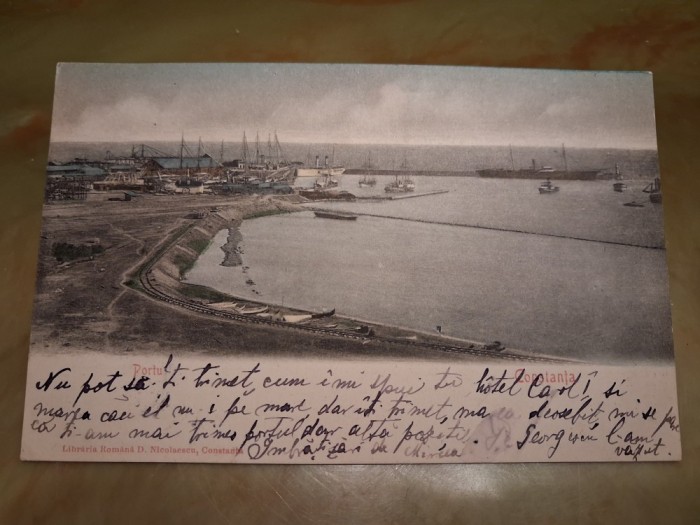 Portul Constanta
Nu pot să-ți trimet, cum îmi spui tu hôtel Carol I și
marea căci el nu-i pe mare, dar îți trimet, marea deosebit, mi se pare
că ți-am mai trimes portul dar altă parte. Georgescu l-am
văzut.
Îmbrățișări
Libraria Română D. Nicolaescu, Constanța